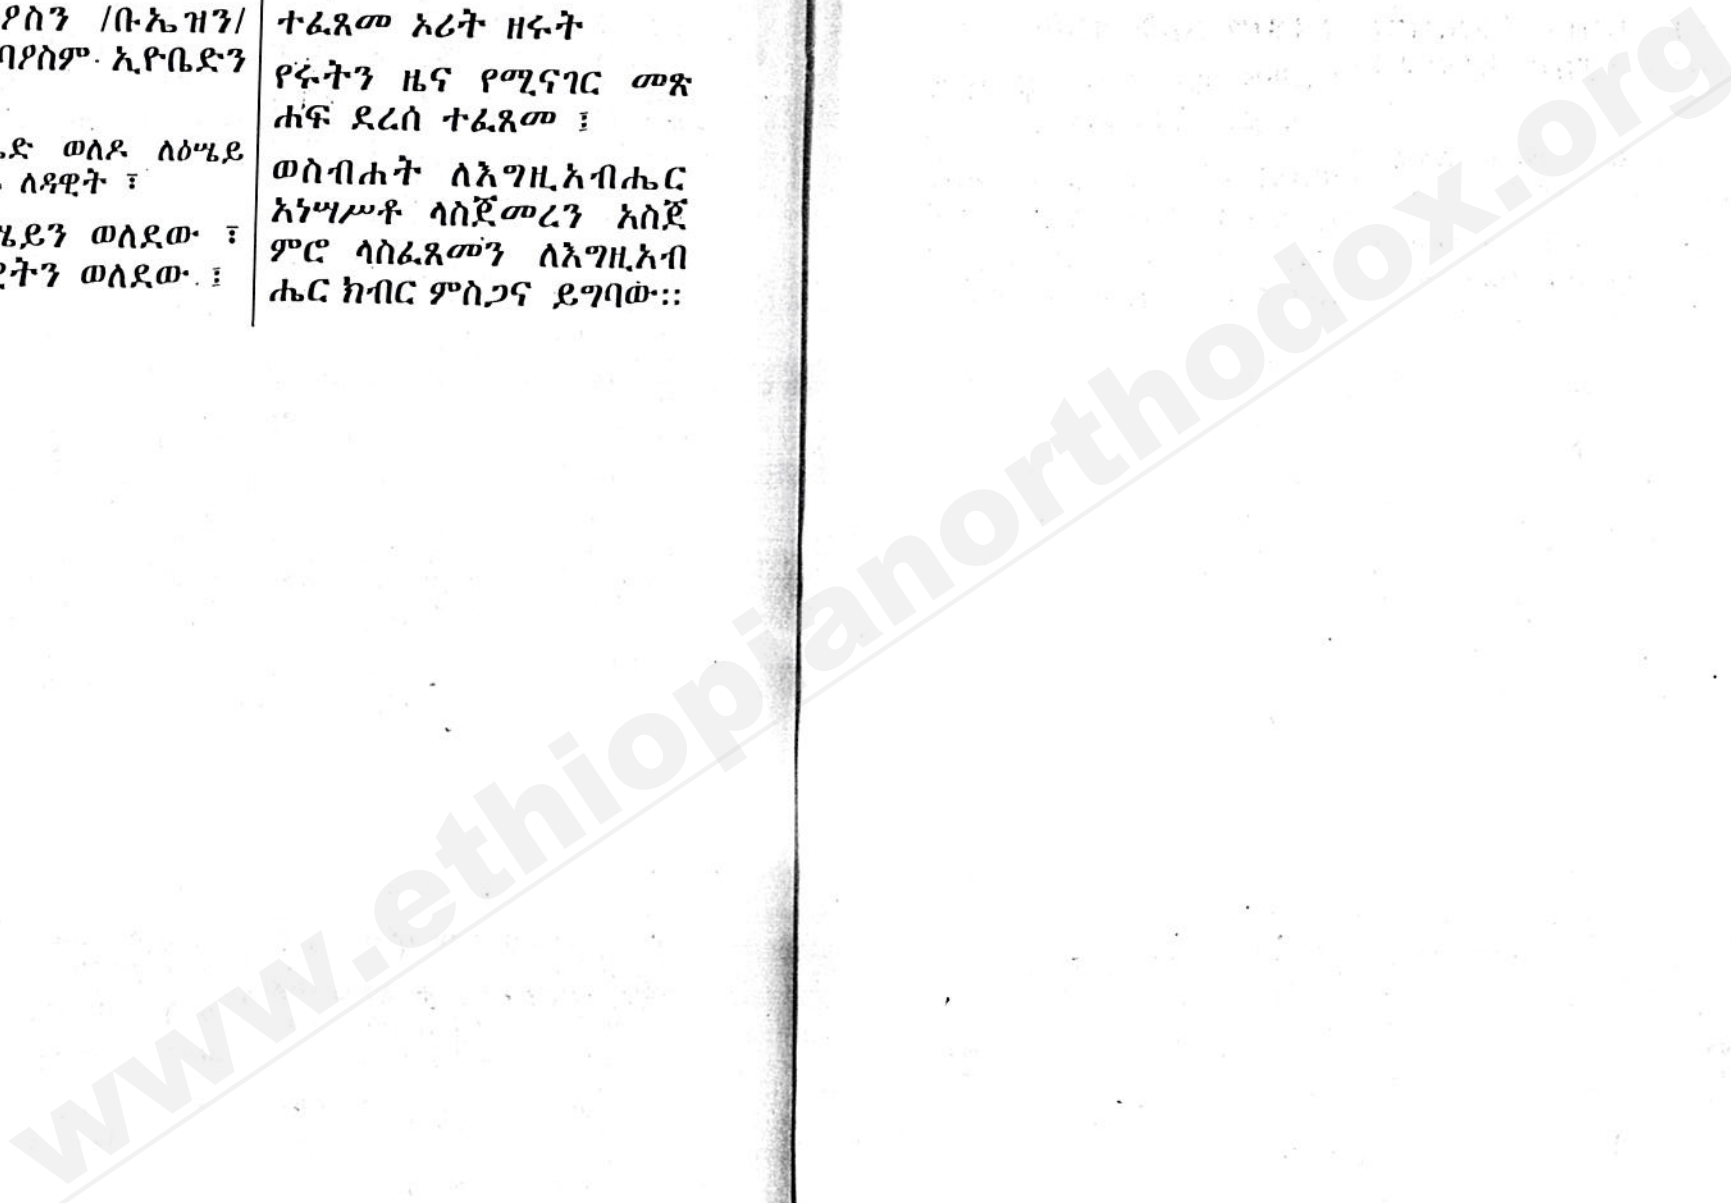 /ቡኤዝን/
ኢዮቤድን
ወለዶ ለዕሤይ
ለዳዊት ፣
ወለደው ፣
ወለደው ፤
ተፈጸመ ኦሪት ዘሩት
የሩትን ዜና የሚናገር መጽ
ሐፍ ደረሰ ተፈጸመ ፤
ወስብሐት ለእግዚአብሔር
አነሣሥቶ ላስጀመረን አስጀ
ምሮ ላስፈጸመን ለእግዚአብ
ሔር ክብር ምስጋና ይግባው።
www.ethiopianorthodox.org